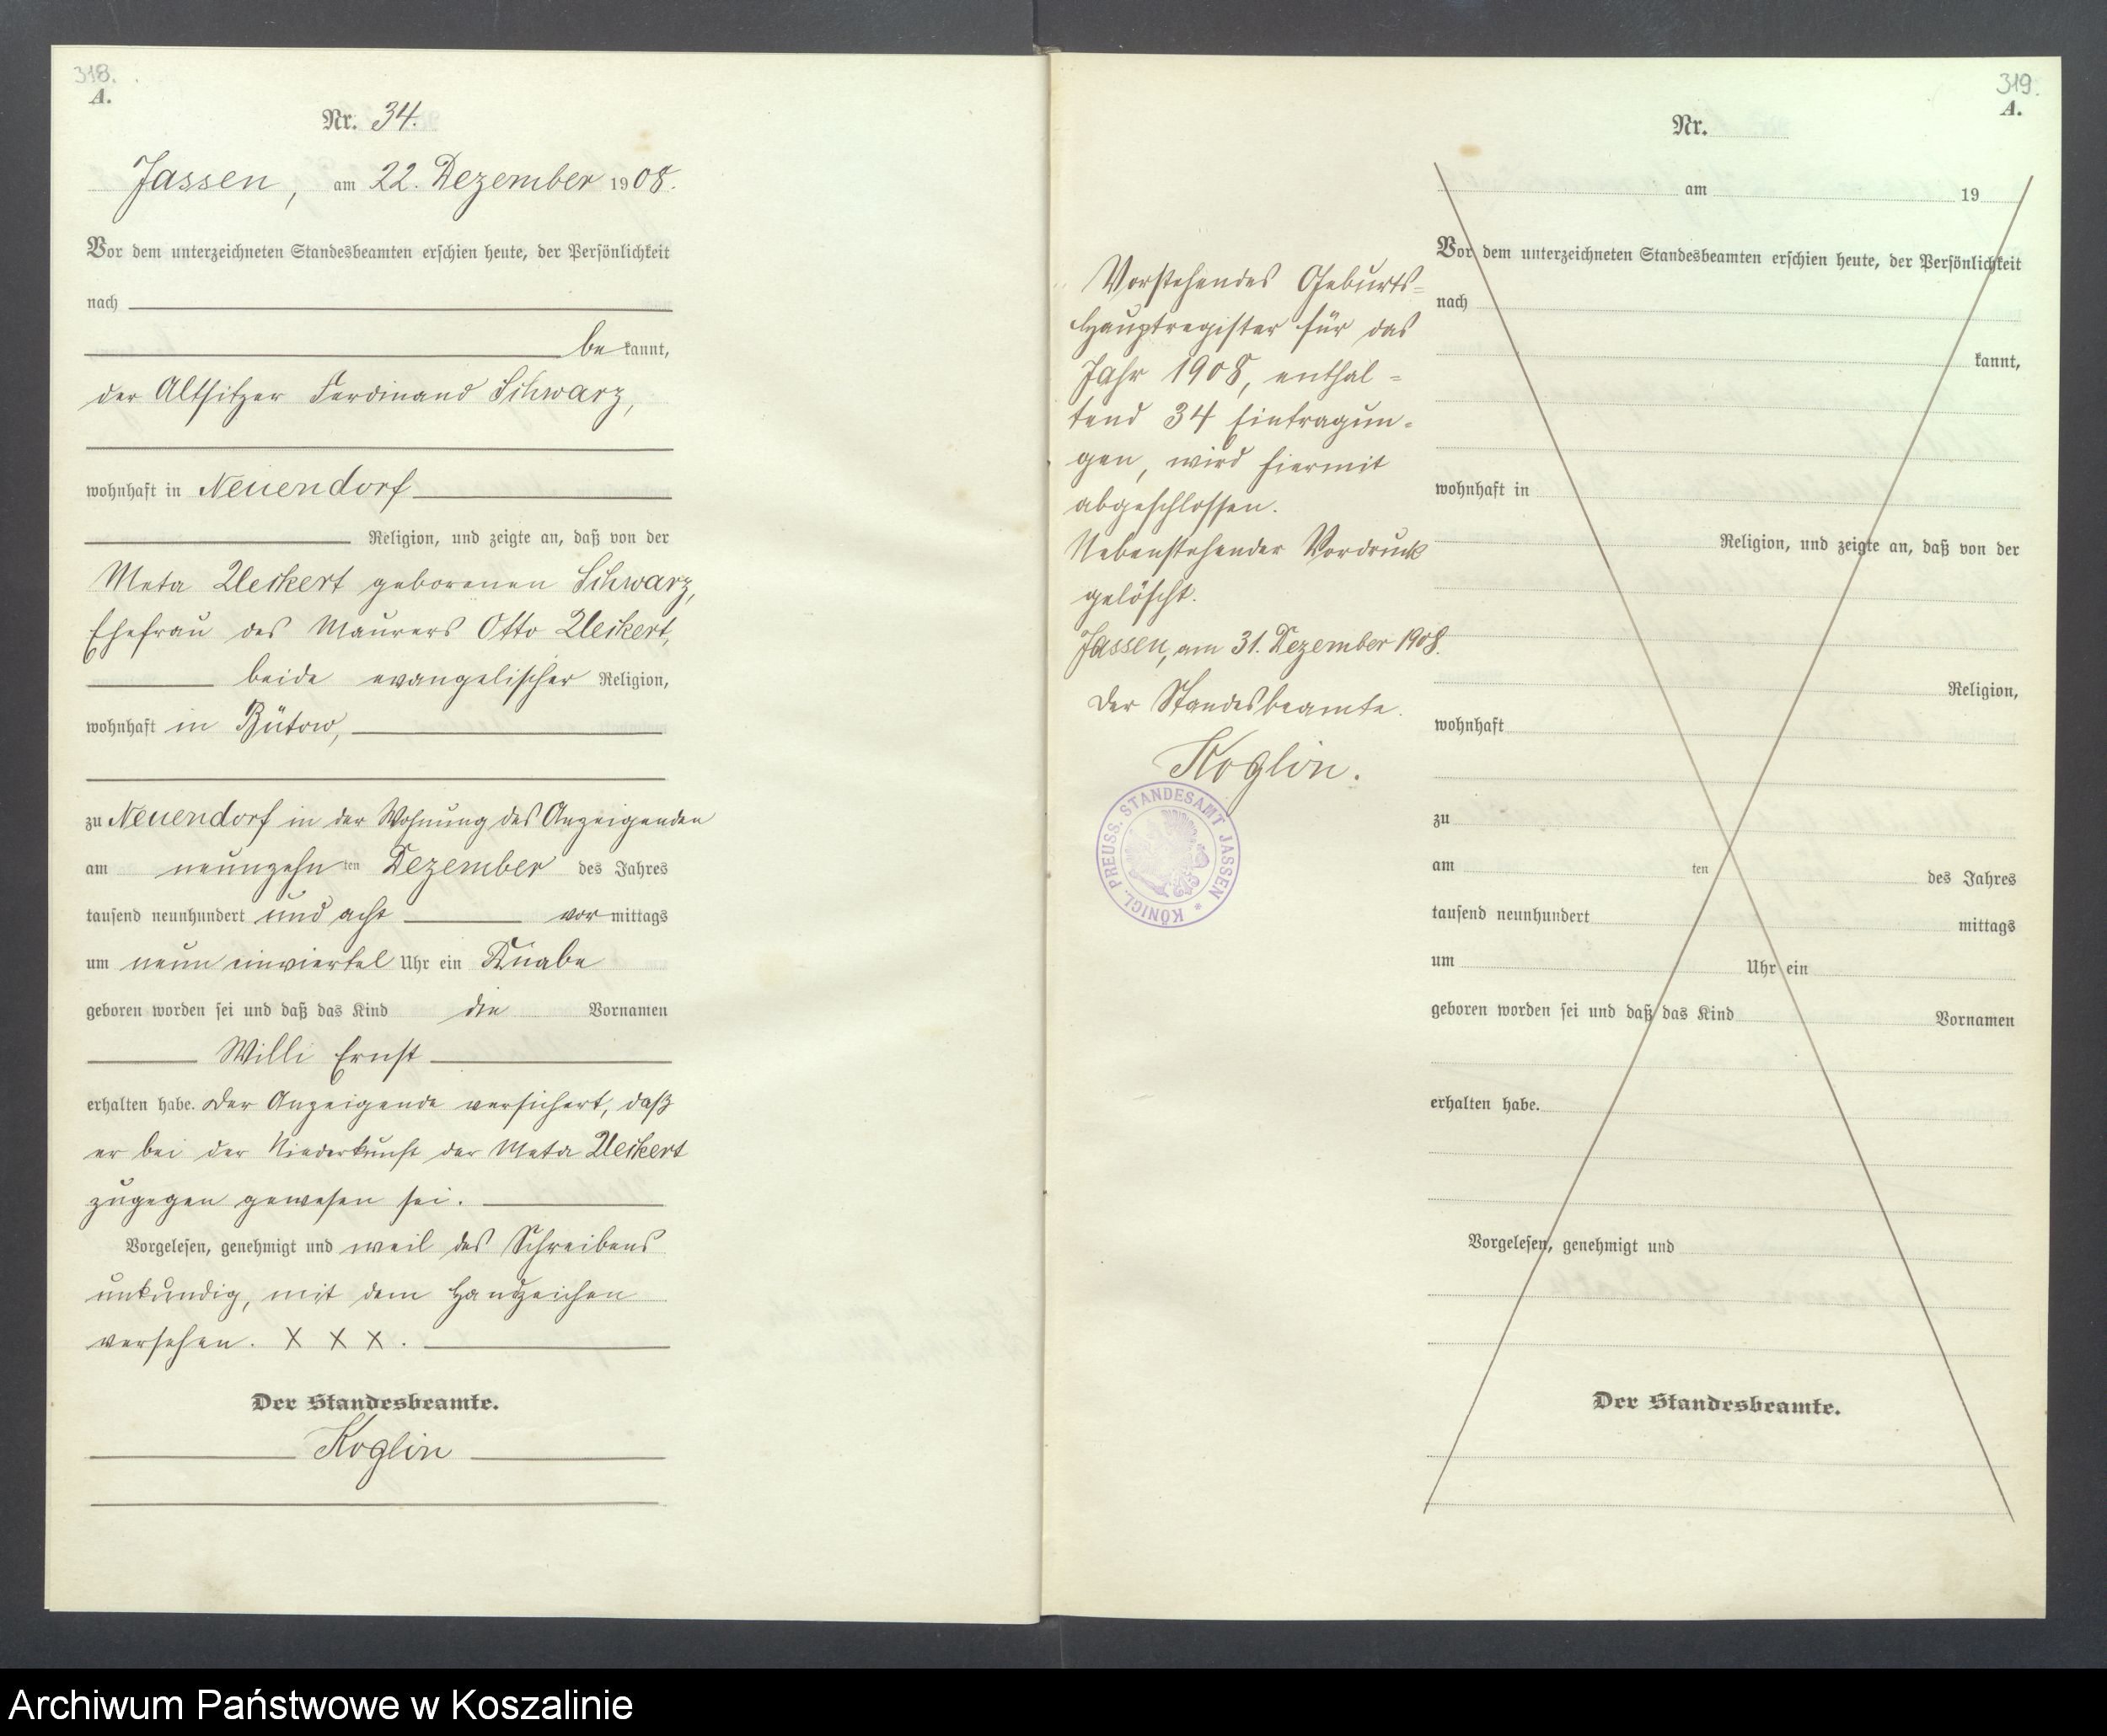 318.
A.
Nr. 34.
Jassen, am 22. Dezember 1908.
Vor dem unterzeichneten Standesbeamten erschien heute, der Persönlichkeit
nach
be kannt,
der Altsitzer Ferdinand Schwarz,
wohnhaft in Neuendorf
Religion, und zeigte an, daß von der
Meta Ueckert geborenen Schwarz,
Ehefrau des Maurers Otto Ueckert,
beide evangelischer Religion,
wohnhaft in Bütow,
zu Neuendorf in der Wohnung des Anzeigenden
am neunzehn ten Dezember des Jahres
tausend neunhundert und acht vor mittags
um neun einviertel Uhr ein Knabe
geboren worden sei und daß das Kind die Vornamen
Willi Ernst
erhalten habe. Der Anzeigende versichert, daß
er bei der Niederkunft der Meta Ueckert
zugegen gewesen sei.
Vorgelesen, genehmigt und weil des Schreibens
unkundig, mit dem Handzeichen
versehen. X X X.
Der Standesbeamte.
Koglin
Vorstehendes Geburts=
Hauptregister für das
Jahr 1908, enthal=
tend 34 Eintragun=
gen, wird hiermit
abgeschlossen.
Nebenstehender Vordruck
gelöscht.
Jassen, am 31. Dezember 1908.
Der Standesbeamte.
Koglin.
KÖNIGL. PREUSS. STANDESAMT JASSEN *
319.
A.
Nr.
am 19
Vor dem unterzeichneten Standesbeamten erschien heute, der Persönlichkeit
nach
kannt,
wohnhaft in
Religion, und zeigte an, daß von der
Religion,
wohnhaft
zu
am ten des Jahres
tausend neunhundert mittags
um Uhr ein
geboren worden sei und daß das Kind Vornamen
erhalten habe.
Vorgelesen, genehmigt und
Der Standesbeamte.
Archiwum Państwowe w Koszalinie